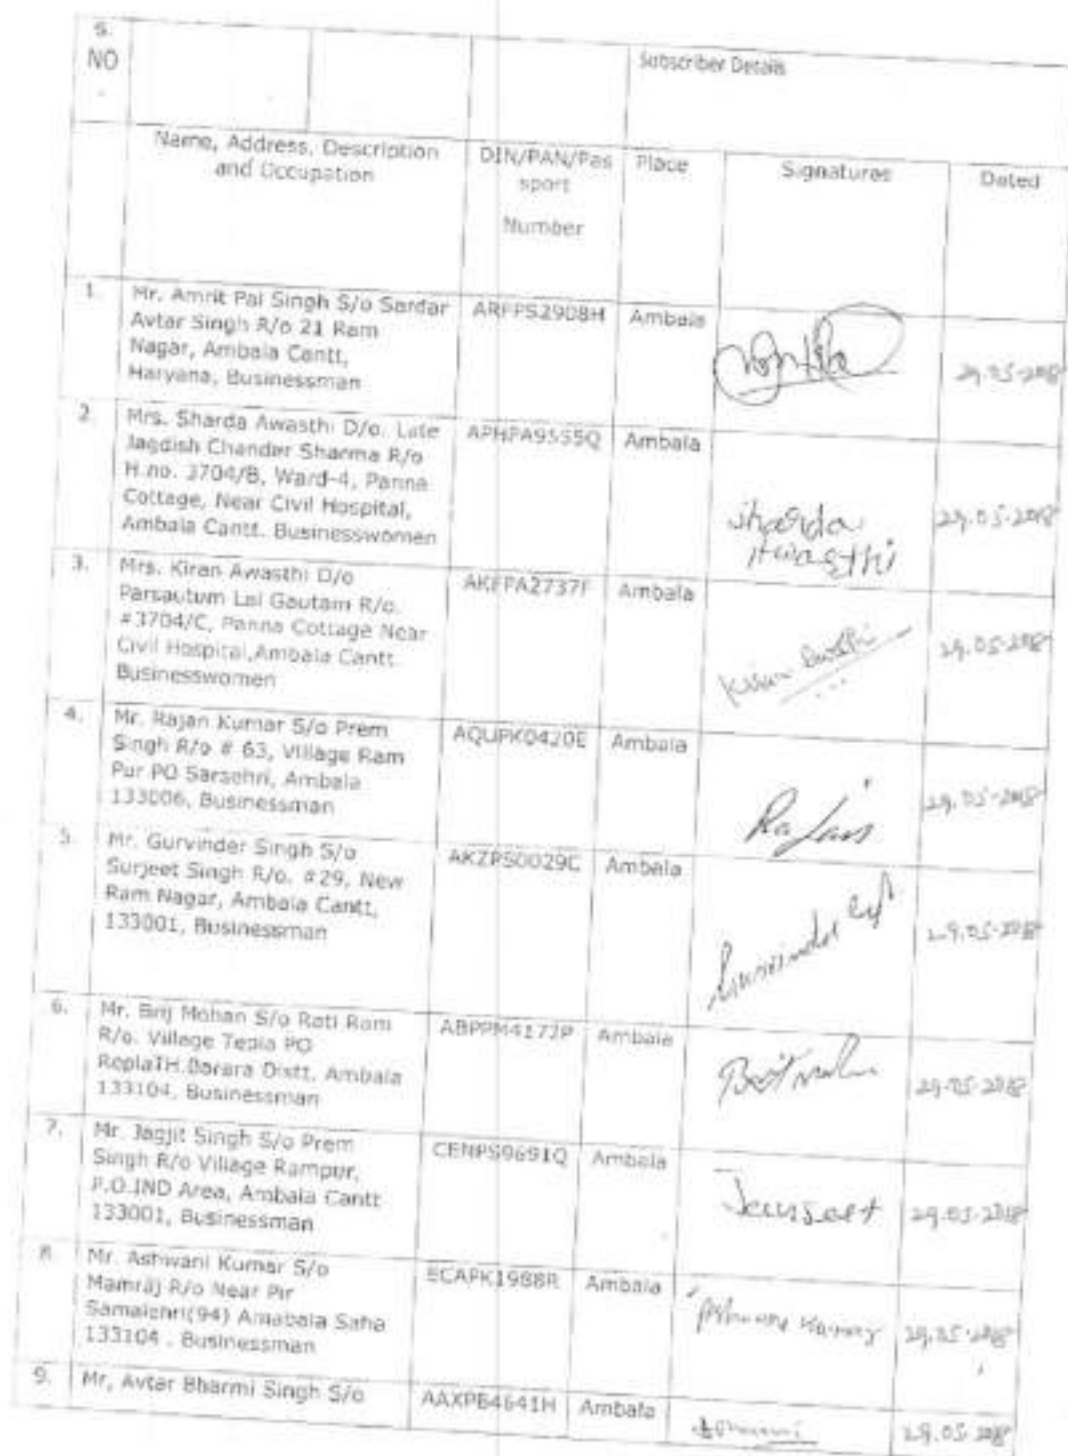 S.
NO
Subscriber Details
Name, Address, Description
and Occupation
DIN/PAN/Pas
sport
Number
Place
Signatures
Dated
1.
Mr. Amrit Pal Singh S/o Sardar
Avtar Singh R/o 21 Ram
Nagar, Ambala Cantt,
Haryana, Businessman
ARFPS2908H
Ambala
29.05-2018
2.
Mrs. Sharda Awasthi D/o. Late
Jagdish Chander Sharma R/o
H.no. 3704/B, Ward-4, Panna
Cottage, Near Civil Hospital,
Ambala Cantt. Businesswomen
APHPA9555Q
Ambala
Sharda
Awasthi
29.05-2018
3.
Mrs. Kiran Awasthi D/o
Parsautum Lal Gautam R/o.
#3704/C, Panna Cottage Near
Civil Hospital,Ambala Cantt.
Businesswomen
AKFPA2737F
Ambala
Kiran
29.05-2018
4.
Mr. Rajan Kumar S/o Prem
Singh R/o # 63, Village Ram
Pur PO Sarsehri, Ambala
133006, Businessman
AQUPK0420E
Ambala
Rajan
29.05-2018
5.
Mr. Gurvinder Singh S/o
Surjeet Singh R/o. #29, New
Ram Nagar, Ambala Cantt,
133001, Businessman
AKZPS0029C
Ambala
Gurvinder
29.05-2018
6.
Mr. Brij Mohan S/o Rati Ram
R/o. Village Tepla PO
ReplaTH.Barara Distt. Ambala
133104, Businessman
ABPPM4172P
Ambala
29-05-2018
7.
Mr. Jagjit Singh S/o Prem
Singh R/o Village Rampur,
P.O.IND Area, Ambala Cantt
133001, Businessman
CENPS9691Q
Ambala
29.05-2018
8
Mr. Ashwani Kumar S/o
Mamraj R/o Near Pir
Samalehri(94) Amabala Saha
133104 . Businessman
ECAPK1988R
Ambala
Ashwani Kumar
29.05-2018
9.
Mr, Avtar Bharmi Singh S/o
AAXPB4641H
Ambala
29.05-2018